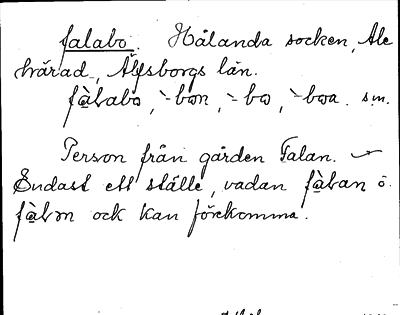 falabo. Hålanda socken, Ale
härad, Älfsborgs län.
fàlabo, `-bon, `-bo, `-boa. sm.
Person från gården Falan.
Endast ett ställe, vadan fàlan o.
fàlon ock kan förekomma.